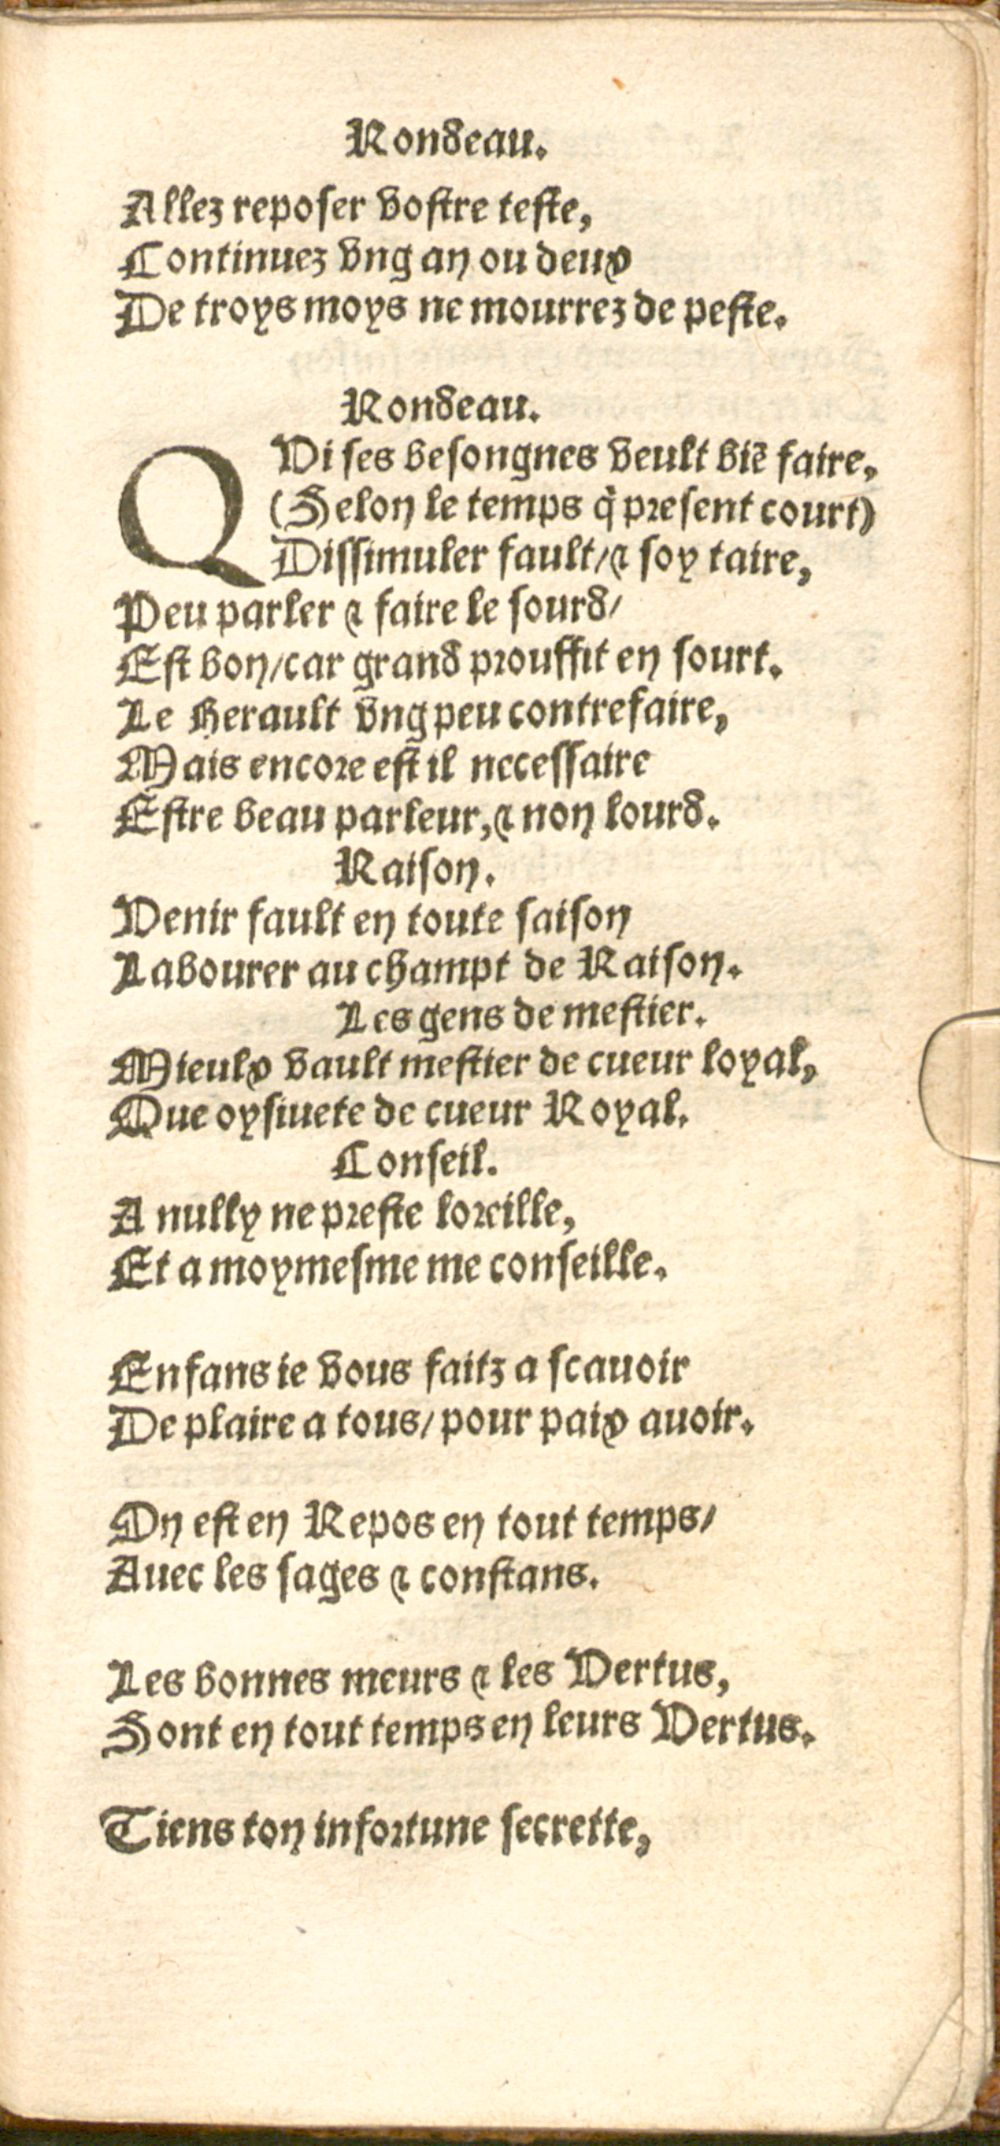 Rondeau.
Allez reposer vostre teste,
Continuez vng an ou deux
De troys moys ne mourrez de peste.
Rondeau.
QVi ses besongnes veult biē faire,
(Selon le temps q̇ present court)
Dissimuler fault/⁊ soy taire,
Peu parler ⁊ faire le sourd/
Est bon/car grand prouffit en sourt.
Le Herault vng peu contrefaire,
Mais encore est il necessaire
Estre beau parleur,⁊ non lourd.
Raison.
Venir fault en toute saison
Labourer au champt de Raison.
Les gens de mestier.
Mieulx vault mestier de cueur loyal,
Que oysiuete de cueur Royal.
Conseil.
A nully ne preste loreille,
Et a moymesme me conseille.
Enfans ie vous faitz a scauoir
De plaire a tous/pour paix auoir.
On est en Repos en tout temps/
Auec les sages ⁊ constans.
Les bonnes meurs ⁊ les Vertus,
Sont en tout temps en leurs Vertus.
Tiens ton infortune secrette,